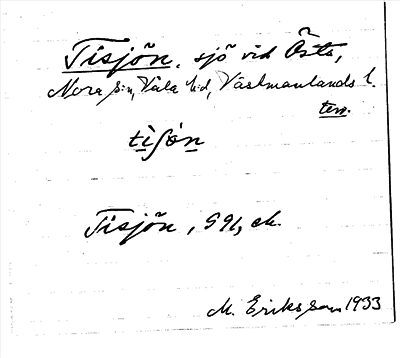 Tisjön, sjö vid Östa,
Nora s:n, Våla h:d, Västmanlands l.
terr.
Tisjön, 591, ek.
M. Eriksson 1933